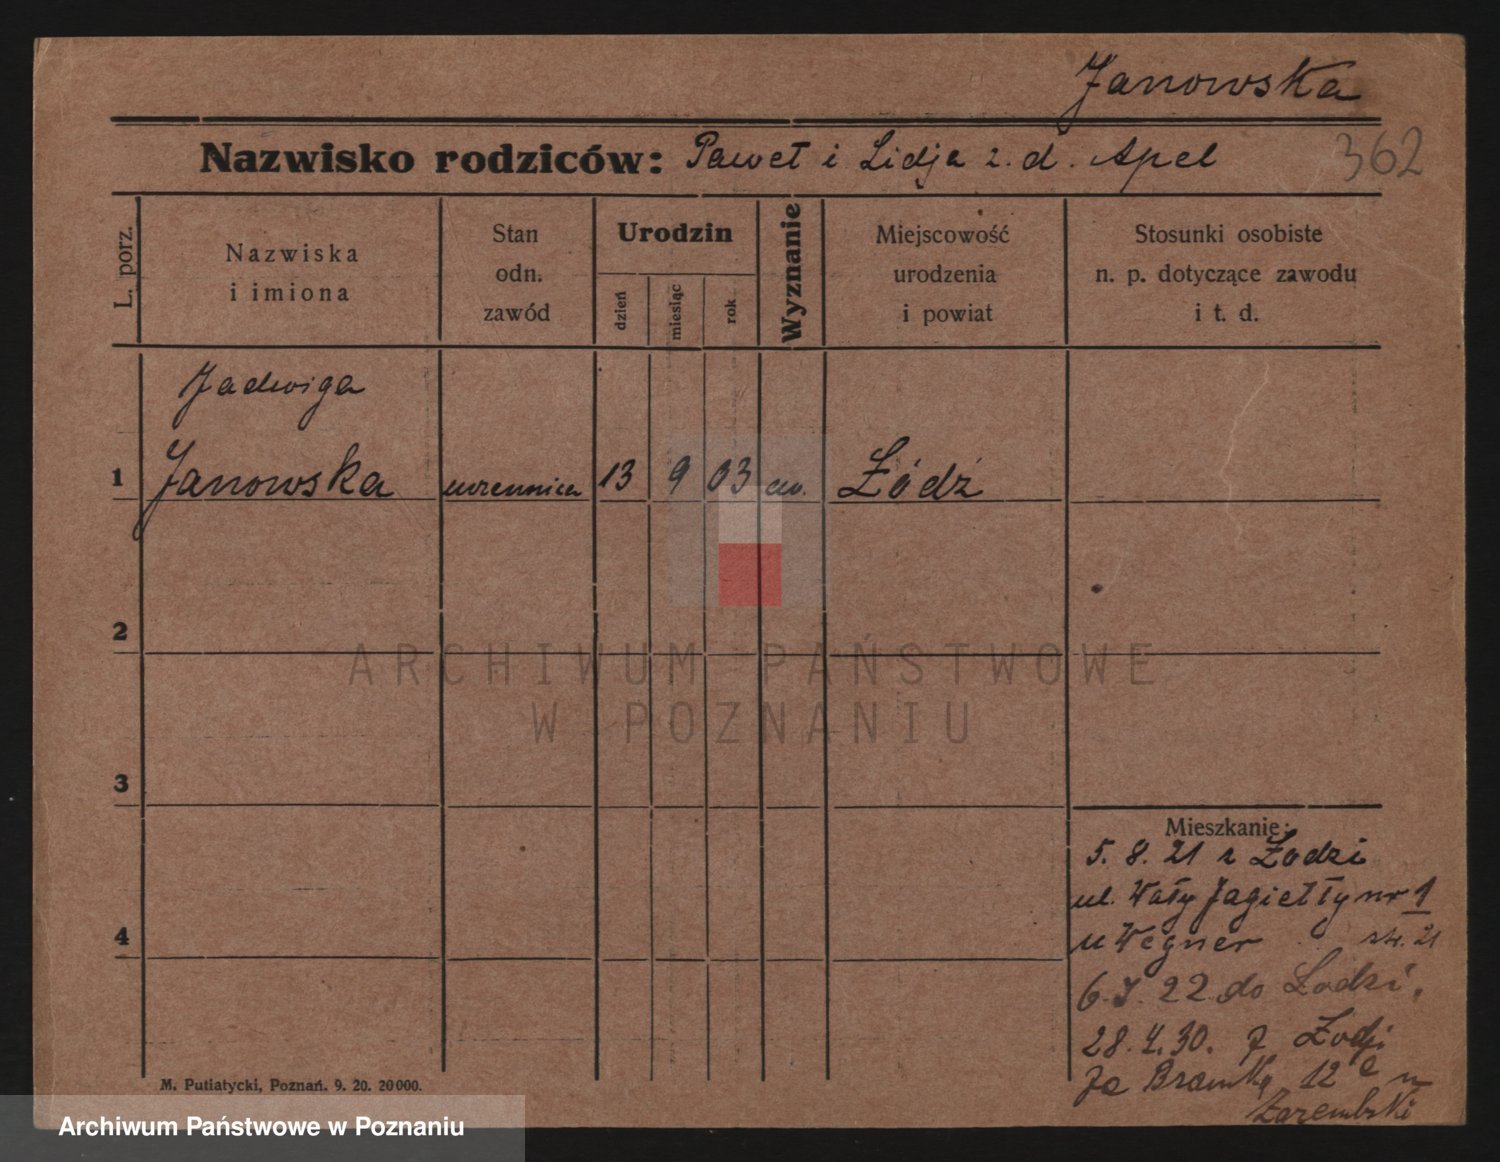 Janowska
Nazwisko rodziców: Paweł i Lidja z. d. Apel
362
L. porz.
Nazwiska
i imiona
Stan
odn.
zawód
Urodzin
dzień
miesiąc
rok
Wyznanie
Miejscowość
urodzenia
i powiat
Stosunki osobiste
n. p. dotyczące zawodu
i t. d.
Jadwiga
1 Janowska uczennica 13 9 03 ew. Łódź
2
3
4
ARCHIWUM PAŃSTWOWE
W POZNANIU
Mieszkanie:
5. 8. 21 z Łodzi
ul. Wały Jagiełły nr 1
u Wegner str. 21
22 do Łodzi,
28. 4. 30. z Łodzi
Za Bramką 12a
Zarembski
M. Putiatycki, Poznań. 9. 20. 20000.
Archiwum Państwowe w Poznaniu